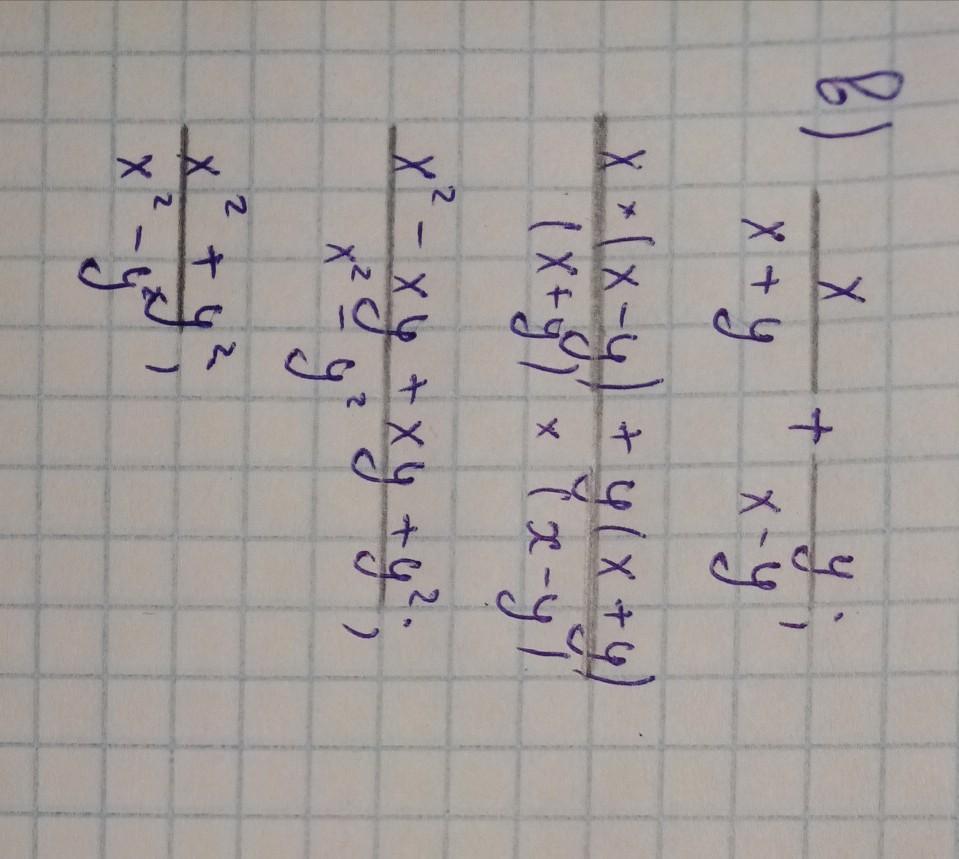 в)
x / x + y + y / x - y ;
x × (x - y) + y (x + y) / (x + y) × (x - y)
x² - xy + xy + y² / x² - y² ;
x² + y² / x² - y² ;